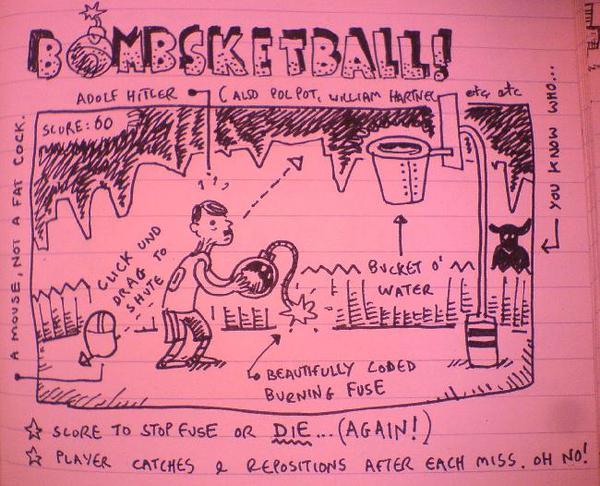 BOMBSKETBALL!
ADOLF HITLER (ALSO POL POT, WILLIAM HARTNEL etc, etc
SCORE: 60
YOU KNOW WHO...
A MOUSE, NOT A FAT COCK.
CLICK UND
DRAG TO
SHUTE
BUCKET O'
WATER
BEAUTIFULLY CODED
BURNING FUSE
SCORE TO STOP FUSE OR DIE... (AGAIN!)
PLAYER CATCHES & REPOSITIONS AFTER EACH MISS. OH NO!